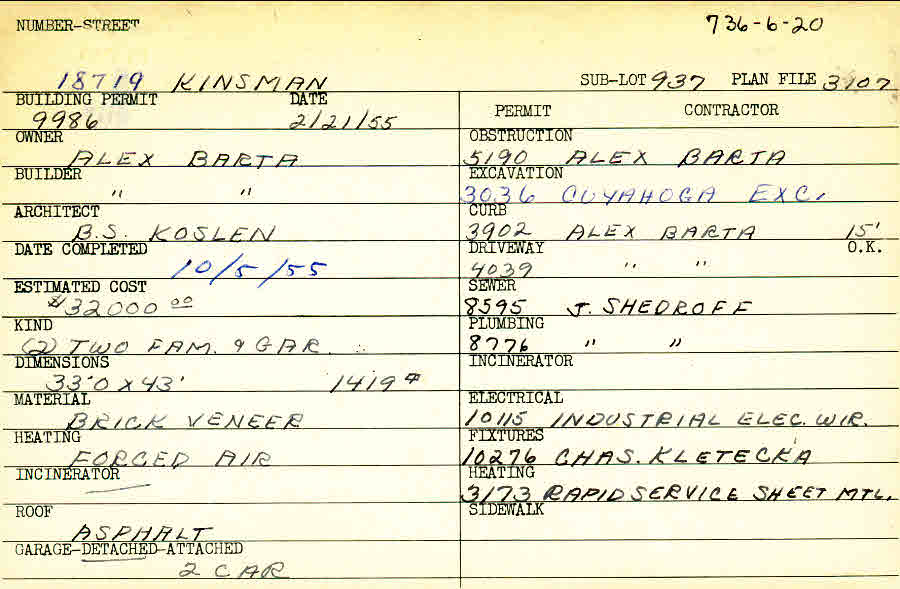 NUMBER-STREET 736-6-20
18719 KINSMAN SUB-LOT 937 PLAN FILE 3107
BUILDING PERMIT DATE
9986 2/21/55
OWNER
ALEX BARTA
BUILDER
" "
ARCHITECT
B.S. KOSLEN
DATE COMPLETED
10/5/55
ESTIMATED COST
$32000 00
KIND
(2) TWO FAM. & GAR.
DIMENSIONS
33'0 x 43' 1419 #
MATERIAL
BRICK VENEER
HEATING
FORCED AIR
INCINERATOR
ROOF
ASPHALT
GARAGE-DETACHED-ATTACHED
2 CAR
PERMIT CONTRACTOR
OBSTRUCTION
5190 ALEX BARTA
EXCAVATION
3036 CUYAHOGA EXC.
CURB
3902 ALEX BARTA 15'
DRIVEWAY O.K.
4039 " "
SEWER
8595 J. SHEDROFF
PLUMBING
8776 " "
INCINERATOR
ELECTRICAL
10115 INDUSTRIAL ELEC. WIR.
FIXTURES
10276 CHAS. KLETECKA
HEATING
3173 RAPID SERVICE SHEET MTL.
SIDEWALK